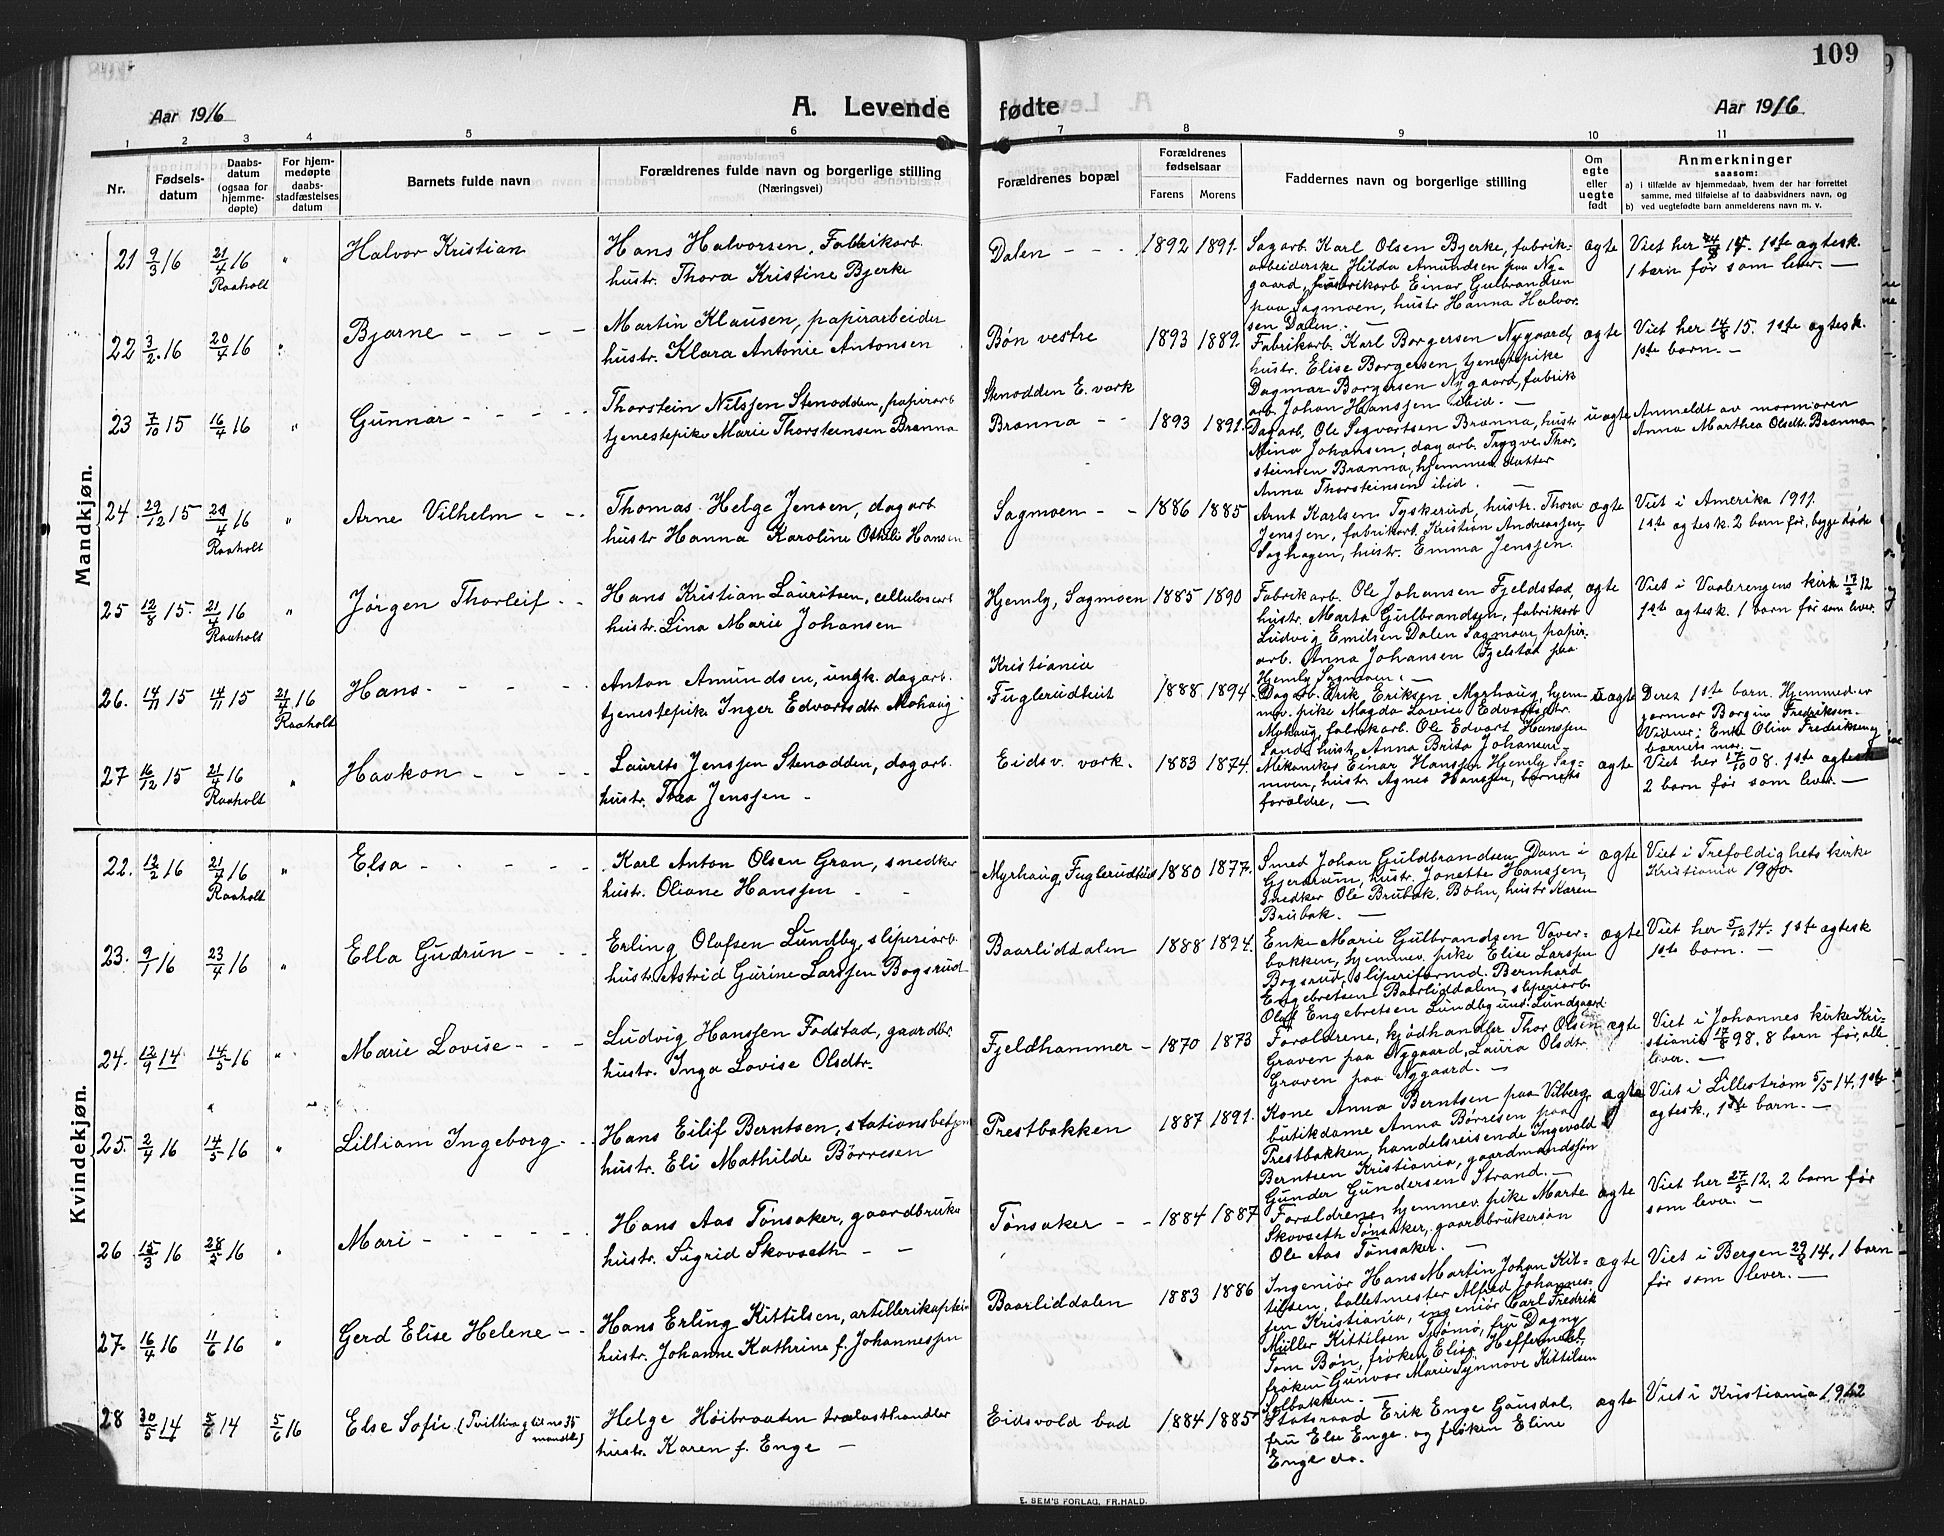 109
Aar 1916
A. Levende fødte
Aar 1916
1 2 3 4 5 6 7 8 9 10 11
Nr.
Fødsels-
datum
Daabs-
datum
(ogsaa for
hjemme-
døpte)
For hjem-
medøpte
daabs-
stadfæstelses
datum
Barnets fulde navn
Forældrenes fulde navn og borgerlige stilling
(Næringsvei)
Forældrenes bopæl
Forældrenes
fødselsaar
Farens Morens
Faddernes navn og borgerlige stilling
Om
egte
eller
uegte
født
Anmerkninger
saasom:
a) i tilfælde av hjemmedaab, hvem der har forrettet
samme, med tilføielse af to daabsvidners navn, og
b) ved uegtefødte barn anmelderens navn m. v.
Mandkjøn.
21 9/3 16 21/4 16 "
Raaholt
Halvor Kristian
Hans Halvorsen, Fabrikarb.
hustr. Thora Kristine Bjerke
Dalen - - - 1892 1891.
Sagarb. Karl Olsen Bjerke, fabrik-
arbeiderske Hilda Amundsen paa Ny-
gaard, fabrikarb Einar Gulbrandsen
paa Sagmoen, hustr Hanna Halvor
sen Dalen. -
ægte
Viet her 14. 1ste ægtesk.
1 barn før som lever. -
22 3/2 16 20/4 16 "
Bjarne - - - -
Martin Klausen, papirarbeider
hustr. Klara Antonie Antonsen
Bøn vestre 1893 1889.
Fabrikarb. Karl Borgersen Nygaard,
hustr. Elise Borgersen, tjenestepike
Dagmar Borgersen Nygaard, fabrik
arb. Johan Hanssen ibid. -
ægte
Viet her 14/8 15. 1ste ægtesk.
1ste barn. -
23 7/10 15 16/4 16 "
Gunnar - - - -
Thorstein Nilssen Stenodden, papirarb
tjenestepike Marie Thorsteinsen Brænna
Stenodden E. værk
Brænna - - 1893 1891.
Dagarb. Ole Segvartsen Brænna, hustr
Nina Johansen, dagarb. Trygve Thor-
steinsen Brænna, hjemmev. datter
Anna Thorsteinsen ibid. -
uægte
Anmeldt av mormoren
Anna Marthea Olsdtr. Brænna
24. 29/12 15 24/4 16 "
Raaholt
Arne Vilhelm - -
Thomas Helge Jensen, dagarb
hustr Hanna Karoline Othilie Hansen
Sagmoen - - 1886 1885
Arnt Karlsen Tyskerud, hustr. Thora
Jenssen, fabrikarb. Kristian Andreassen,
Saghagen, hustr. Emma Jenssen.
ægte
Viet i Amerika 1911.
1ste ægtesk. 2 barn før, begge døde
25 12/8 15. 21/4 16 "
Raaholt
Jørgen Thorleif - -
Hans Kristian Lauritsen, cellulosearb
hustr. Lina Marie Johansen
Hjemly, Sagmoen 1885 1890
Fabrikarb. Ole Johansen Fjeldstad,
hustr. Marta Gulbrandsen, fabrikarb
Ludvig Emilsen Dalen Sagmoen, papir-
arb. Anna Johansen Fjelstad paa
Hjemly Sagmoen. -
ægte
Viet i Vaalerengens kirke 17/3 12
1ste ægtesk. 1 barn før som lever.
26. 14/11 15 14/11 15 21/4 16
Raaholt
Hans. - - - -
Anton Amundsen, ungk. dagarb.
tjenestepike Inger Edvartsdtr Mohaug
Kristiania
Fuglerudkeit 1888 1894.
Dagarb. Erik Eriksen Myrhaug, hjem
mev. pike Magda Lovise Edvartsdtr
Myhaug, fabrikarb. Ole Edvart Hanssen
Sand, hustr. Anna Brita Johansen -
uægte
Deres 1ste barn. Hjemmed. av
jormor Borgine Fredriksen.
Vidner: Enke Oline Fredriksen og
barnets mor. -
27 16/12 15 21/4 16 "
Raaholt
Haakon - - - -
Laurits Jenssen Stenodden, dagarb.
hustr. Thea Jenssen -
Eidsv. værk. 1883 1874.
Mekaniker Einar Hanssen Hjemly Sag-
moen, hustr. Agnes Hanssen, barnets
forældre, -
ægte
Viet her 17/10 08. 1ste ægtesk
2 barn før som lever. -
Kvindekjøn.
22. 12/2 16 21/4 16 "
Raaholt
Elsa - - - - -
Karl Anton Olsen Gran, snedker
hustr. Oliane Hanssen - -
Myrhaug, Fuglerudkeit 1880 1877.
Smed Johan Guldbrandsen Dam i
Gjerdrum, hustr. Jonette Hanssen,
snedker Ole Brubak. Bøhn, hustr Karen
Brubak. -
ægte
Viet i Trefoldighets kirke
Kristiania 1900.
23. 9/1 16 23/4 16 "
Ella Gudrun - - -
Erling Olafsen Lundby, sliperiarb.
hustr. Astrid Gurine Larssen Bogsrud
Baarliddalen 1888 1894.
Enke Marie Gulbrandsen Vover-
bakken, hjemmev. pike Elise Larssen
Bogsrud, sliperiformd. Bernhard
Engebretsen Baarliddalen, sliperiarb.
Olaf Engebretsen Lundby und. Lundgaard
ægte
Viet her 5/12 14. 1ste ægtesk
1ste barn. -
24. 12/9 14 14/5 16 "
Marie Lovise - - -
Ludvig Hanssen Fodstad, gaardbr.
hustr. Inga Lovise Olsdtr.
Fjeldhammer - 1870 1873
Forældrene, kjødhandler Thor Olsen
Graven paa Nygaard, Laura Olsdtr.
Graven paa Nygaard. -
ægte
Viet i Johannes kirke Kri-
stiania 17/8 98. 8 barn før, alle
lever. -
25. 2/4 16 14/5 16 "
Lilliam Ingeborg - -
Hans Eilif Berntsen, stationsbetjen
hustr. Eli Mathilde Børresen
Prestbakken 1887 1891.
Kone Anna Berntsen paa Vilberg,
butikdame Anna Børresen paa
Prestbakken, handelsreisende Ingevald
Berntsen Kristiania, gaardmandssøn
Gunder Gundersen Strand. -
ægte
Viet i Lillestrøm 5/5 14, 1ste
ægtesk., 1ste barn. -
26 15/3 16 28/5 16 "
Mari - - - - -
Hans Aas Tønsaker, gaardbruker
hustr. Sigrid Skovseth - -
Tønsaker - - 1884 1887
Forældrene, hjemmev. pike Marte
Skovseth Tønsaker, gaardbrukersøn
Ole Aas Tønsaker. -
ægte
Viet her 27/5 12, 2 barn før
som lever. -
27. 16/4 16 11/6 16 "
Gerd Elise Helene - -
Hans Erling Kittilsen, artillerikaptein
hustr. Johanne Kathrine f. Johannessen
Baarliddalen 1883 1886
Ingeniør Hans Martin Johan Kit-
tilsen, balletmester Alfred Johannes-
sen Kristiania, ingeniør Carl Fredrik
Müller Kittilsen Tjømø, fru Dagny
Tom Bøn, frøken Elise Heffermehl,
frøken Gunvor Marie Synnøve Kittilsen
Solbakken. -
ægte
Viet i Bergen 29/8 14, 1 barn
før som lever. -
28 30/5 14 5/6 14 5/6 16
Else Sofie. (Tvilling til no 35
mandk.)
Helge Høibraaten trælasthandler
hustr. Karen f. Enge -
Eidsvold bad 1884 1885
Statsraad Erik Enge Gausdal,
fru Else Enge og frøken Eline
Enge do.
ægte
Viet i Kristiania 1912
E. SEM'S FORLAG, FR.HALD.